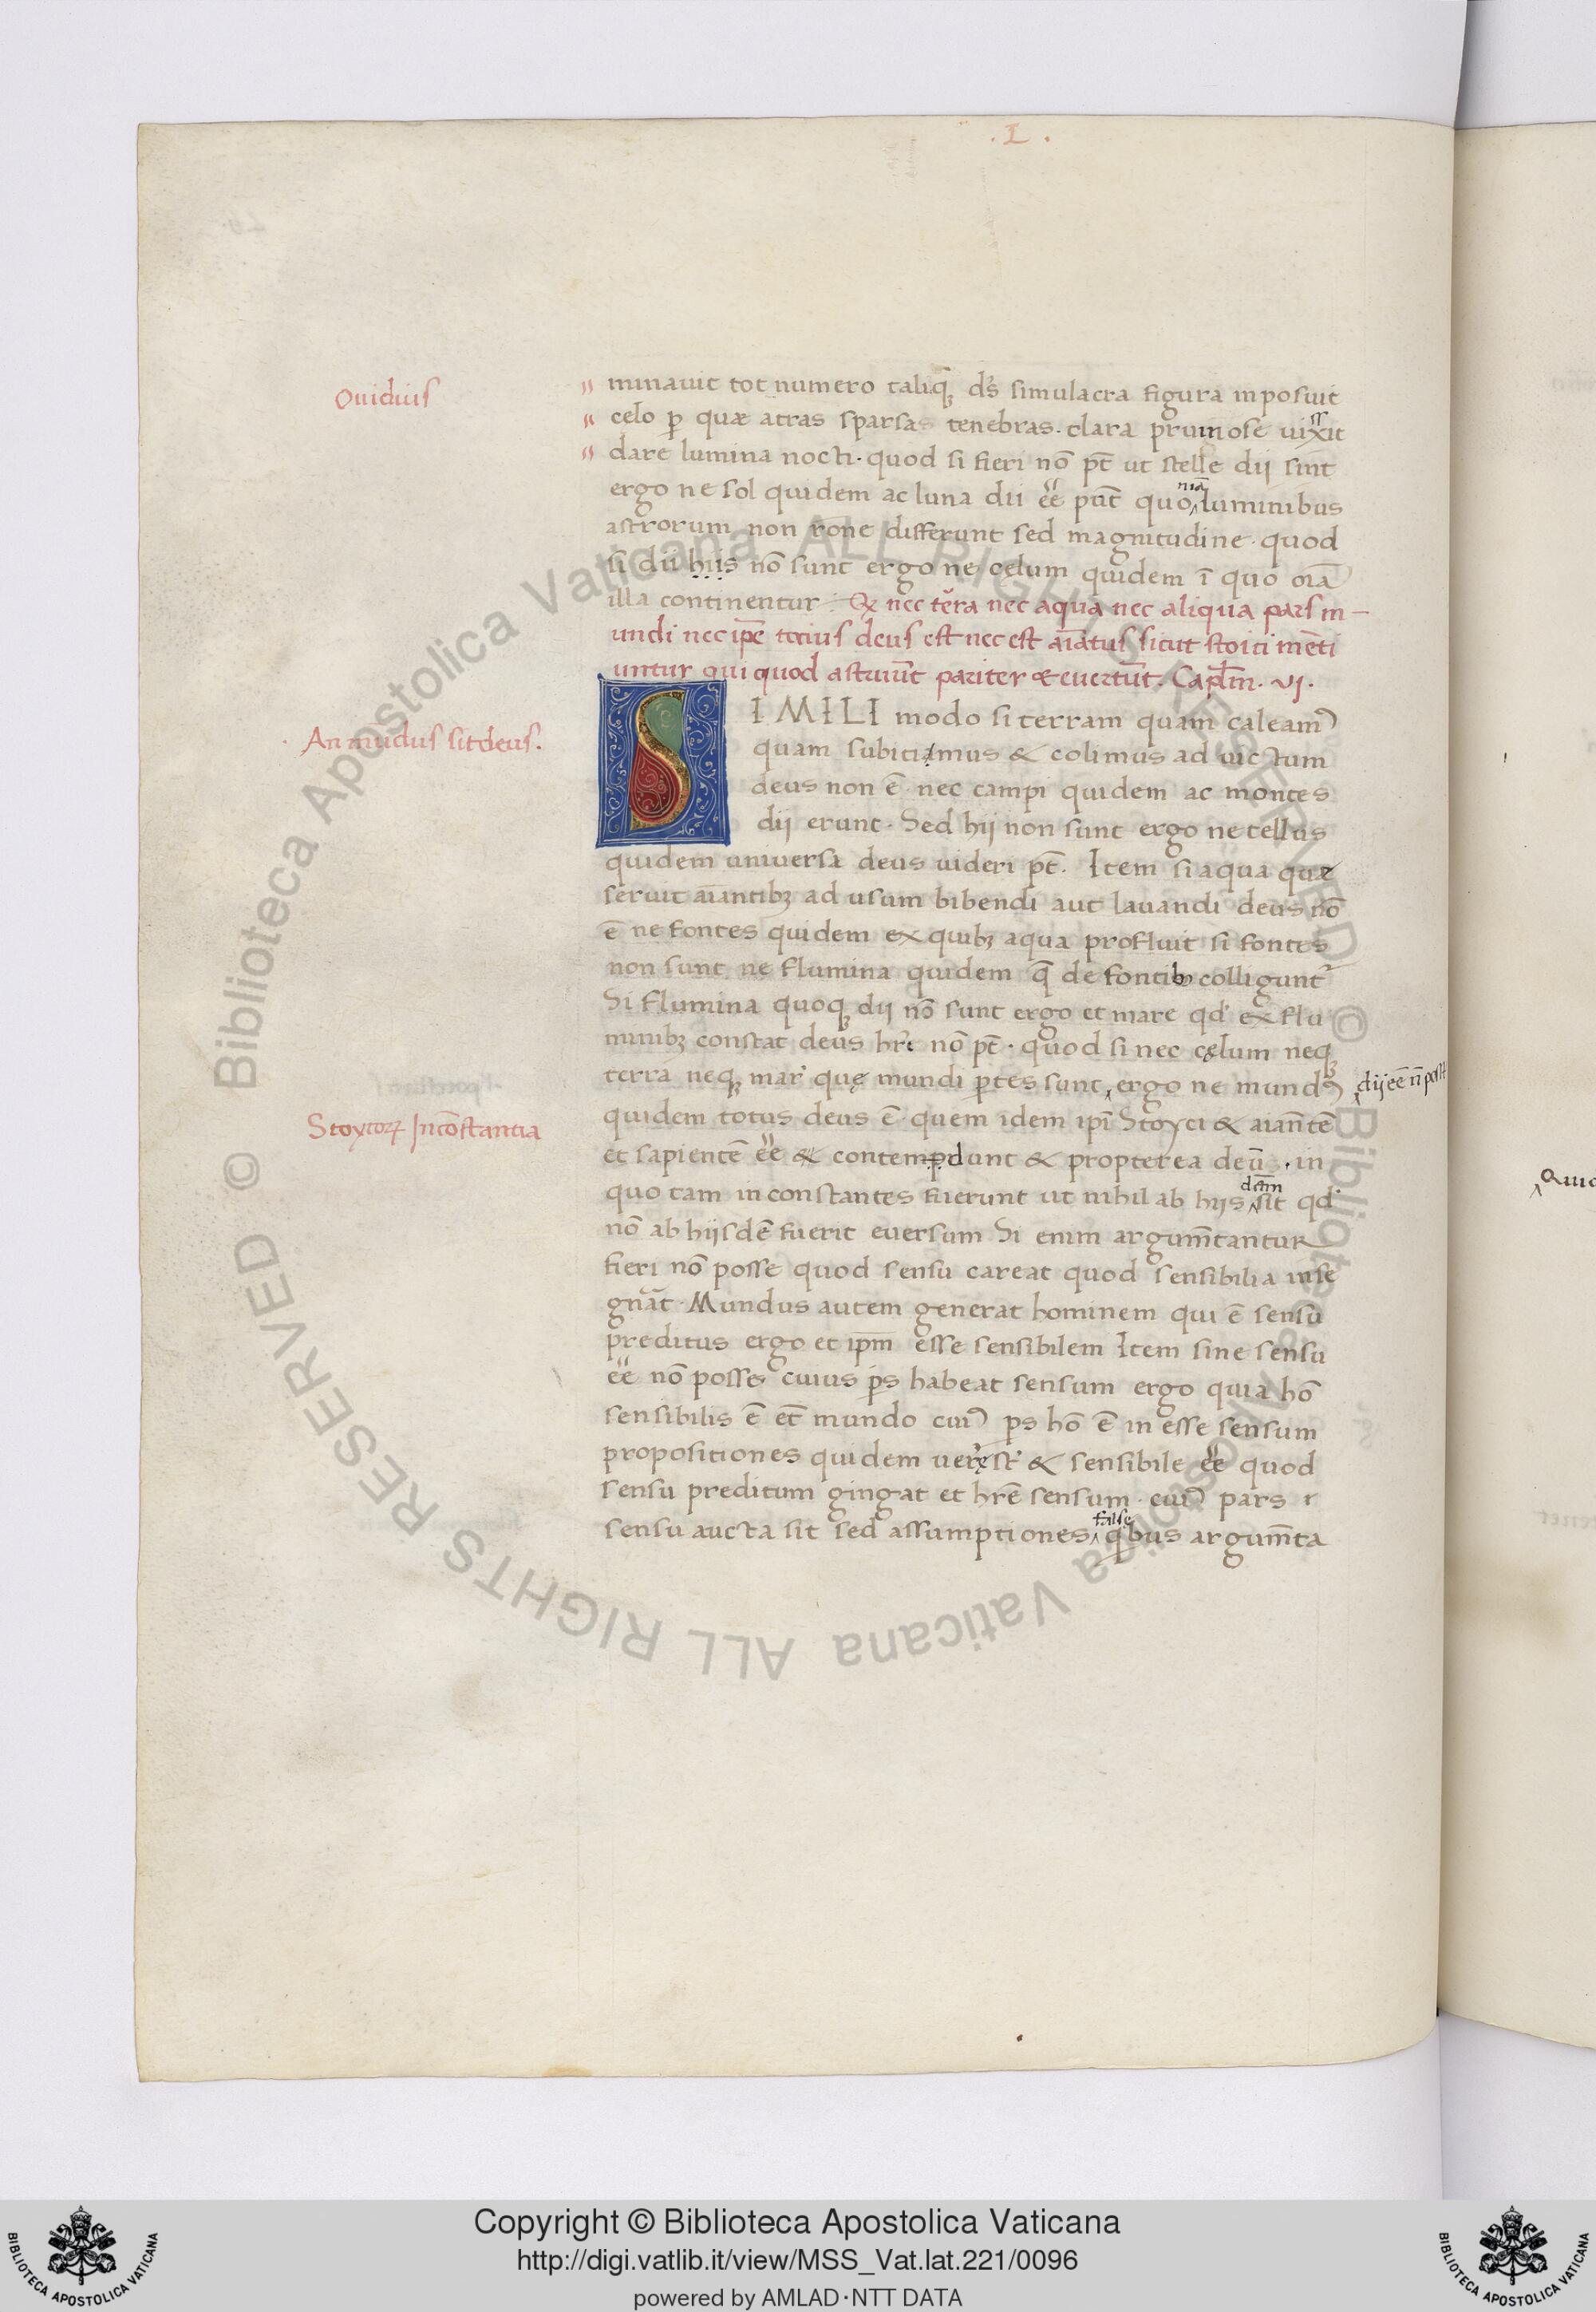 . I .
Ouidius
minauit tot numero taliq̄ꝫ ds̄ simulacra figura inposuit
celo ꝑ quæ atras sparsas tenebras. clara pruinose uixit
ss
dare lumina nocti. quod si fieri nō pt̄ ut stelle dij sint
ergo ne sol quidem ac luna dii ēē pūt quo luminibus
niā
astrorum non rōne differunt sed magnitudine. quod
si dii hiis nō sunt ergo ne cęlum quidem ī quo oīa
illa continentur. Q nec tēra nec aqua nec aliqua pars m
undi nec ipē totius deus est nec est aīatus sicut stoici mēti
untur qui quod astruūt pariter & euertūt. Capl̄m. VI.
SIMILI modo si terram quam caleam
An mūdus sit deus.
quam subiciamus & colimus ad uictum
deus non ē. nec campi quidem ac montes
dij erunt. Sed hij non sunt ergo ne tellus
quidem universa deus uideri pt̄. Item si aqua quæ
seruit aīantibꝫ ad usum bibendi aut lauandi deus nō
ē ne fontes quidem ex quibꝫ aqua profluit si fontes
non sunt ne flumina quidem q̄ de fontib colligunt
Si flumina quoqꝫ dij nō sunt ergo et mare qd ex flu
minibꝫ constat deus hri nō pt̄. quod si nec cęlum neqꝫ
terra neqꝫ mar quę mundi ꝑtes sunt ergo ne mund
dij ēē n̄ posst
quidem totus deus ē. quem idem ipī Stoyci & aiāntē
Stoycoꝝ Incōstantia
et sapientē ēē & contempdunt & propterea deū. in
quo tam inconstantes fuerunt ut nihil ab hijs sit qd
dcm̄
nō ab hijsdē fuerit euersum Si enim argum̄tantur
fieri nō posse quod sensu careat quod sensibilia inse
gnāt. Mundus autem generat hominem qui ē sensu
preditus ergo et ipm esse sensibilem Item sine sensu
ēē nō posse cuius ps habeat sensum ergo quia hō
sensibilis ē et̄ mundo cui ps hō ē in esse sensum
propositiones quidem uerę st & sensibile ēē quod
sensu preditum gingat et hrē sensum. cui pars
sensu aucta sit sed assumptiones qbus argum̄ta
false
Copyright © Biblioteca Apostolica Vaticana
http://digi.vatlib.it/view/MSS_Vat.lat.221/0096
powered by AMLAD·NTT DATA
BIBLIOTECA APOSTOLICA VATICANA
BIBLIOTECA APOSTOLICA VATICANA
© Biblioteca Apostolica Vaticana ALL RIGHTS RESERVED
© Biblioteca Apostolica Vaticana ALL RIGHTS RESERVED